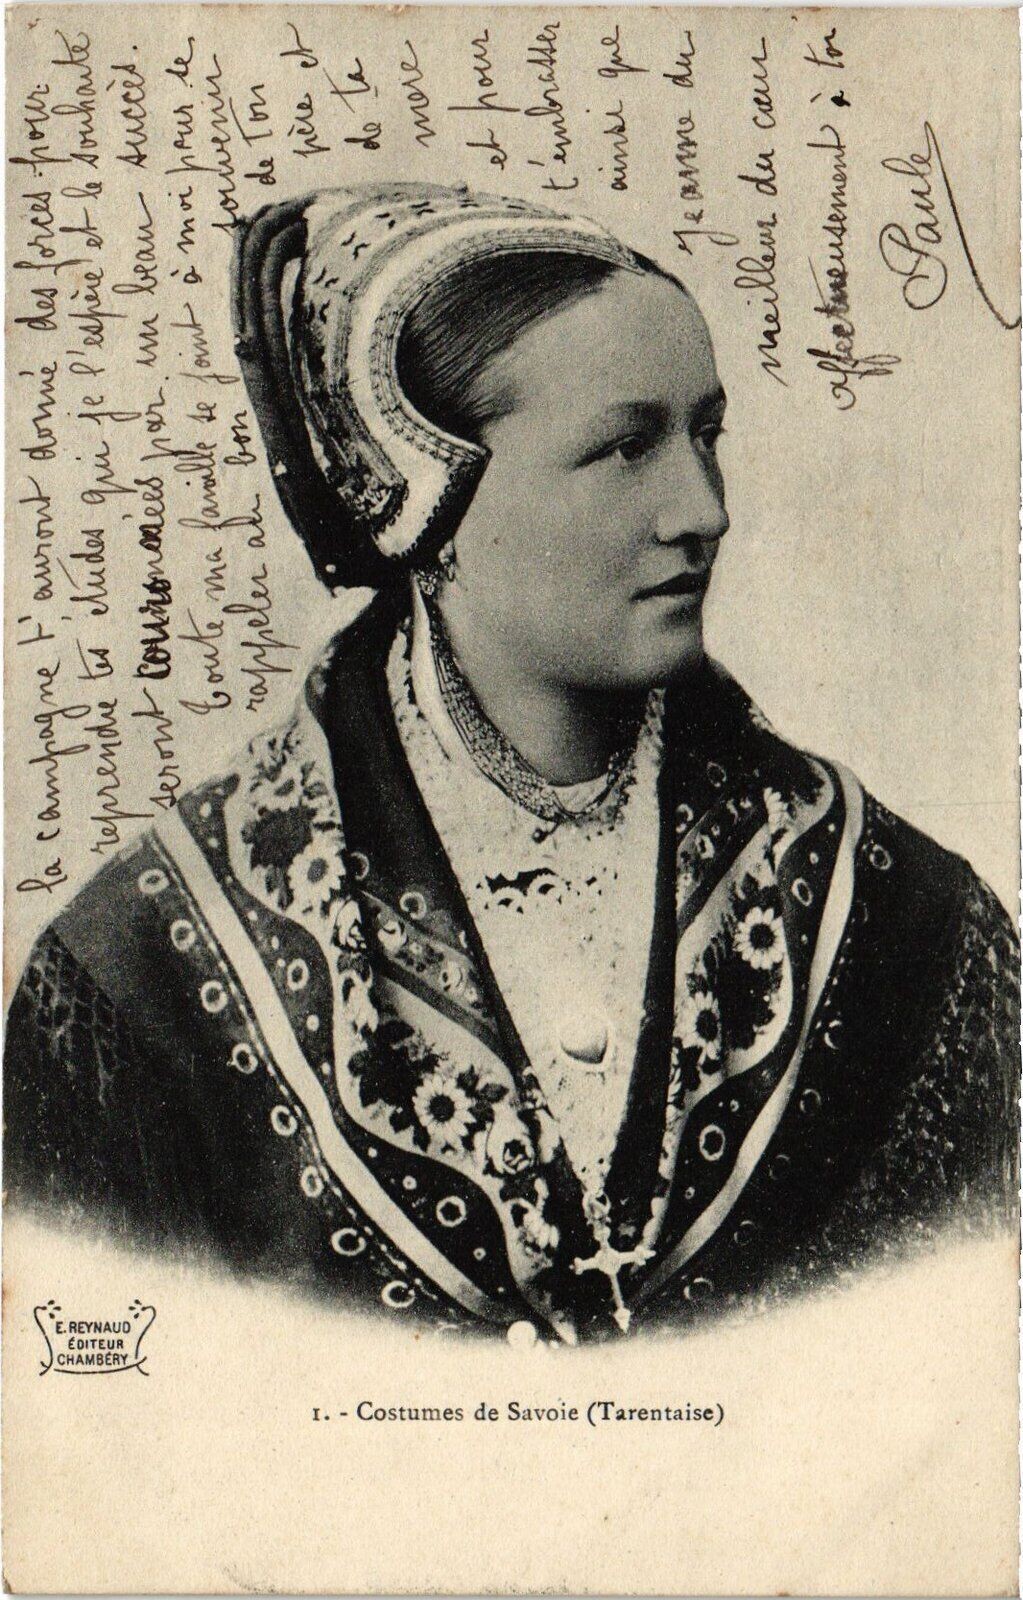 la campagne t'auront donné des forces pour
reprendre tes études qui je l'espère et le souhaite
seront couronnées par un beau succès.
Toute ma famille se joint à moi pour se
rappeler au bon souvenir
de ton
père et
de ta
mère
et pour
t'embrasser
ainsi que
Jeanne du
meilleur du cœur
affectueusement à toi
Paule
E. REYNAUD
ÉDITEUR
CHAMBÉRY
1. - Costumes de Savoie (Tarentaise)